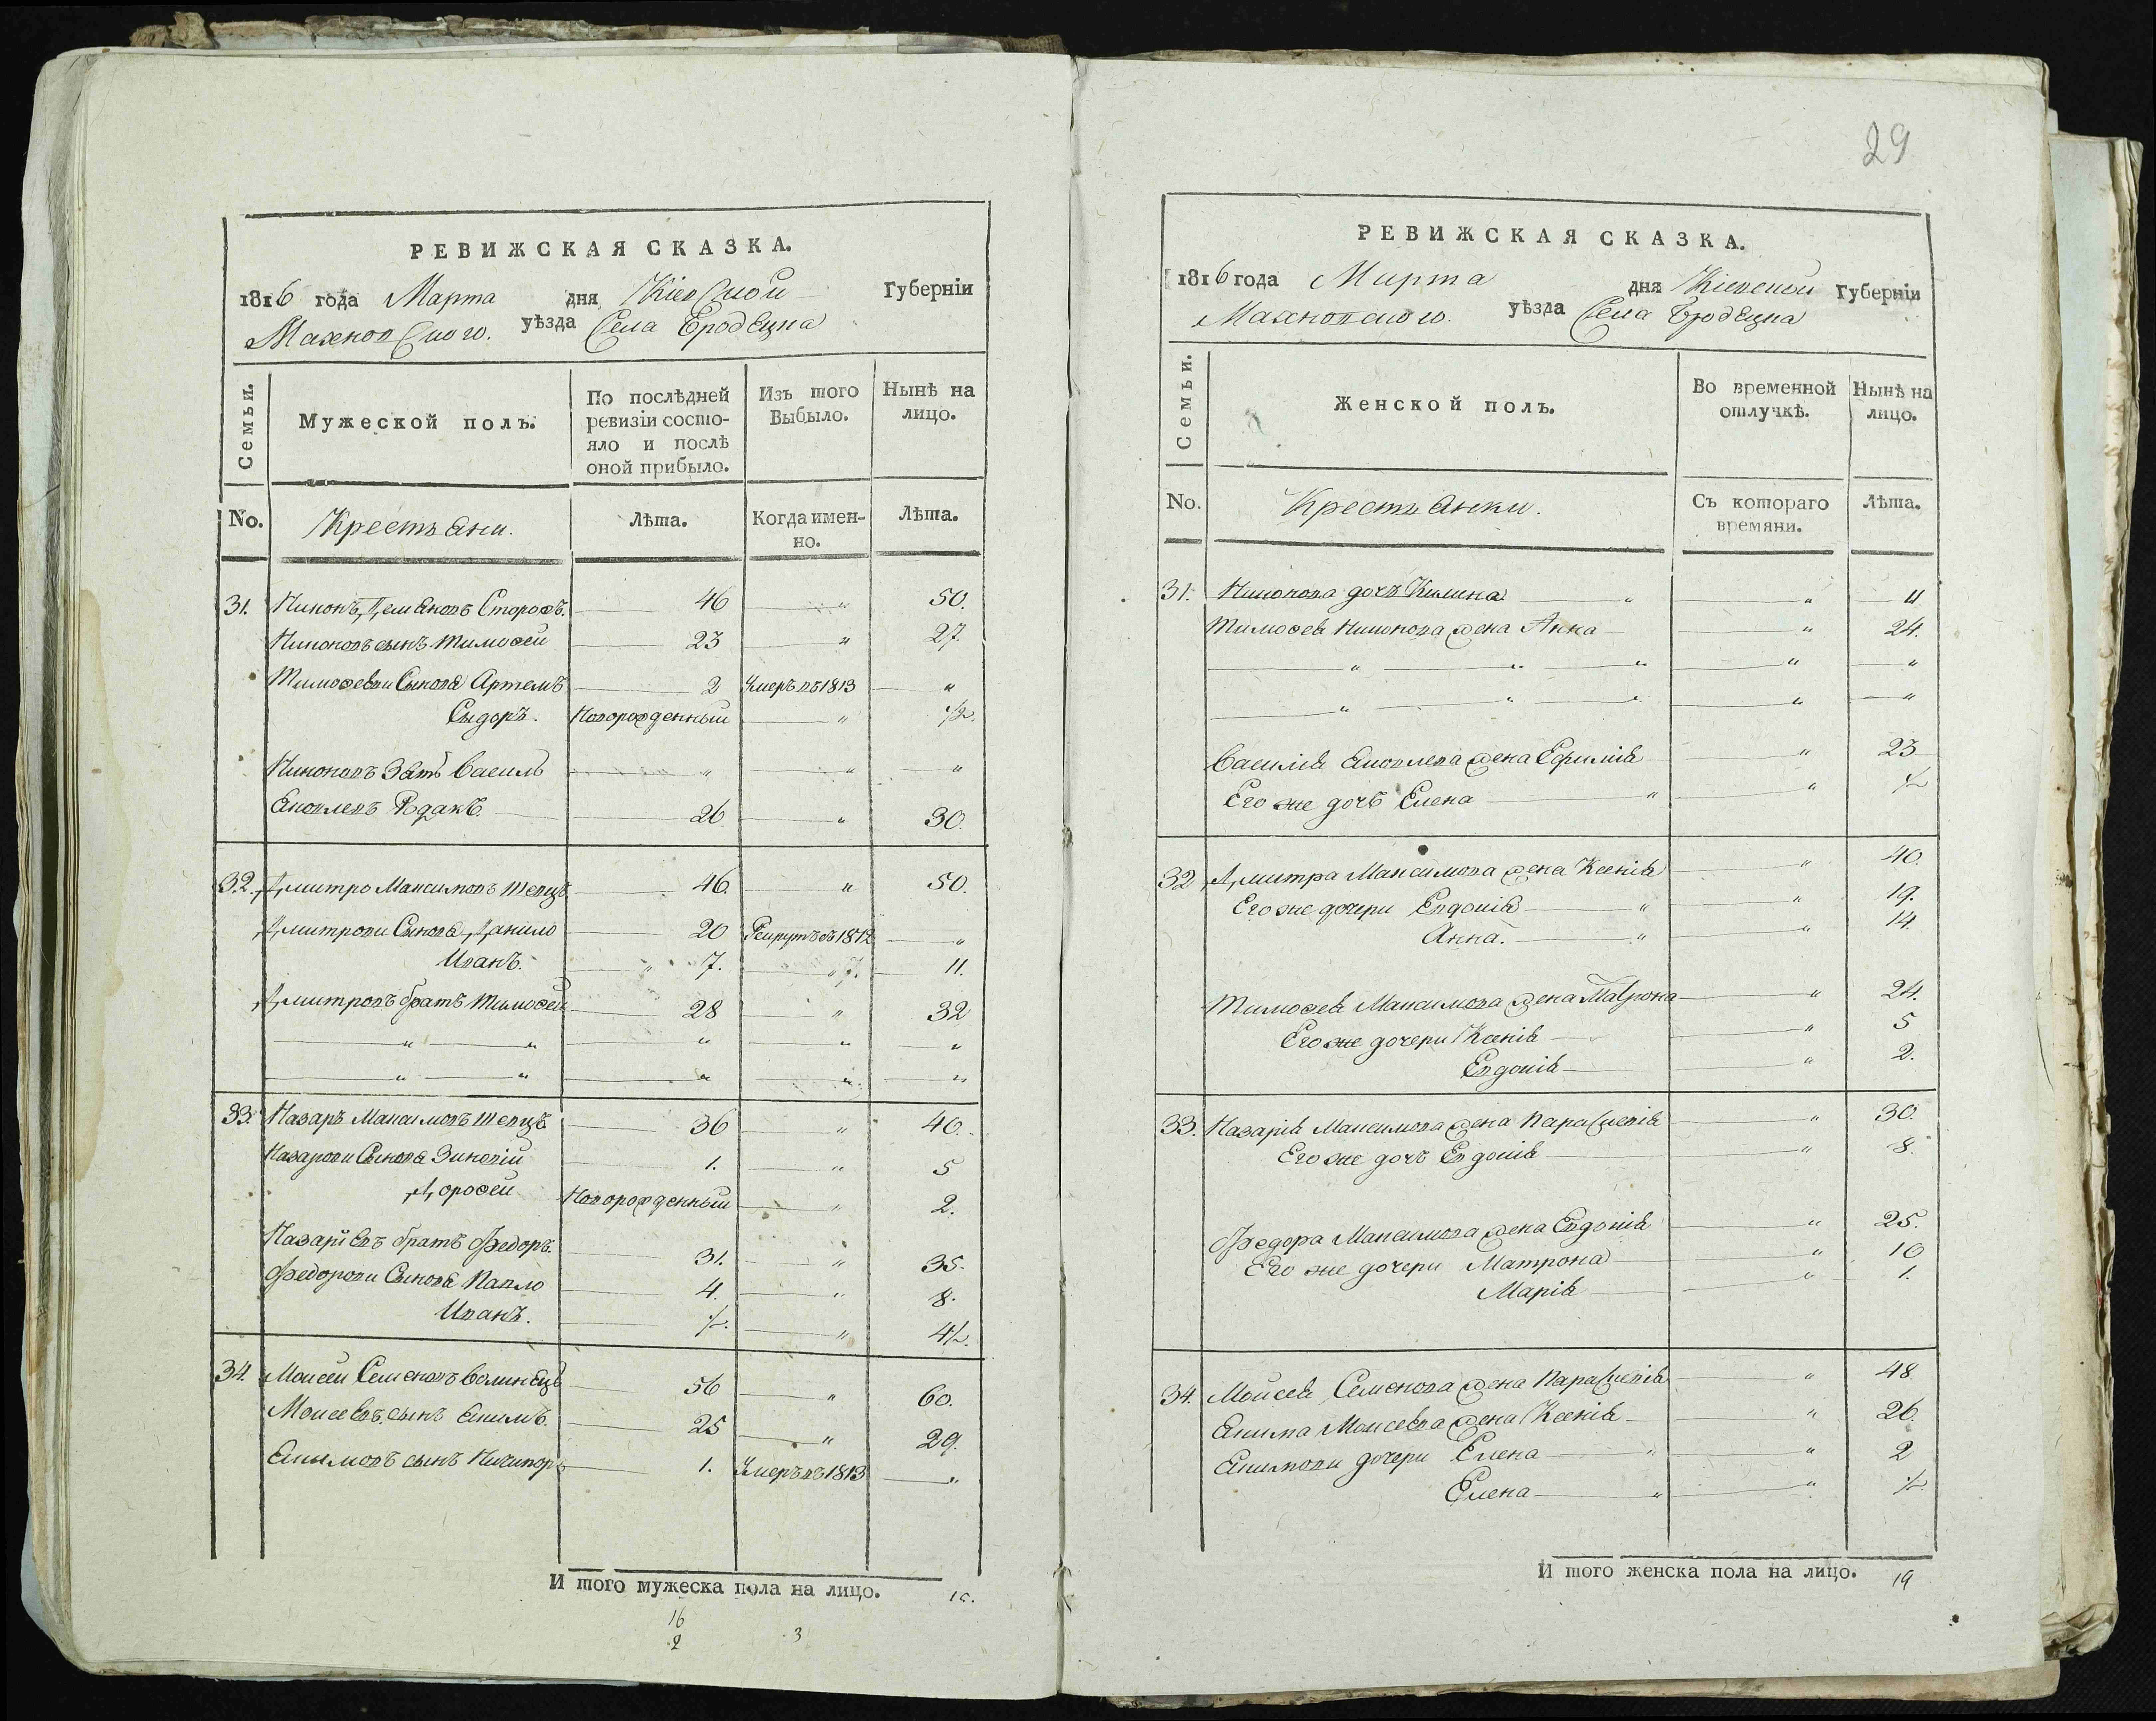 РЕВИЖСКАЯ СКАЗКА.
1816 года Марта дня Кіевской Губерніи
Махновского. уѣзда Села Бродецка
Семьи.
Мужеской полъ.
По послѣдней ревизіи состояло и послѣ оной прибыло.
Изъ того Выбыло.
Нынѣ на лицо.
No. Крестьяни. Лѣта. Когда именно. Лѣта.
31. Никонъ Демяновъ Сторожъ. 46 " 50.
Никоновъ сынъ Тимофей 23 " 27.
Тимофеевы Сынова Артемъ 2 Умеръ въ 1813 "
Сидоръ. Новорожденный " 1/2.
Никоновъ Зять Василь " " "
Яковлевъ 26 " 30.
32. Дмитро Максимовъ Швецъ 46. " 50.
Дмитровы Сынова Данило 20 Рекрутъ въ 1812 "
Иванъ. " 7. " 11.
Дмитровъ братъ Тимофей 28 " 32
" " " " "
" " " " "
33. Назаръ Максимовъ Швецъ 36 " 40.
Назаровы Сынова Зиновій 1. " 5
Дорофей Новорожденный " 2.
Назаріевъ братъ Федоръ. 31. " 35.
Федоровы Сынова Павло 4. " 8.
Иванъ. 1/2. " 4 1/2.
34. Моисей Семеновъ Волинецъ 56 " 60.
Моисеевъ сынъ Якимъ. 25 " 29.
Якимовъ сынъ Ничипоръ 1. Умеръ въ 1813 "
И того мужеска пола на лицо.
16
2 3
29
РЕВИЖСКАЯ СКАЗКА.
1816 года Марта дня Кіевской Губерніи
Махновского. уѣзда Села Бродецка
Семьи.
Женской полъ.
Во временной отлучкѣ.
Нынѣ на лицо.
No. Крестьянки. Съ котораго времяни. Лѣта.
31. Никонова дочь Килина " " 11
Тимофея Никонова жена Анна " 24.
" " " " "
" " " " "
Василія Яковлева жена Ефимія " 23
Его же дочь Елена " " 1/2
32 Дмитра Максимова жена Ксенія " 40.
Его же дочери Евдокія " " 19.
Анна. " " 14.
Тимофея Максимова жена Маврона " 24.
Его же дочери Ксенія " 5
Евдокія " 2.
33. Назарія Максимова жена Параскевія " 30.
Его же дочь Евдокія " 8.
Федора Максимова жена Евдокія " 25.
Его же дочери Матрона " 10
Марія " 1.
34. Мойсея Семенова жена Параскевія " 48.
Якима Моисеева жена Ксенія " 26.
Якимовы дочери Елена " " 2
Елена " " 1/2
И того женска пола на лицо. 19